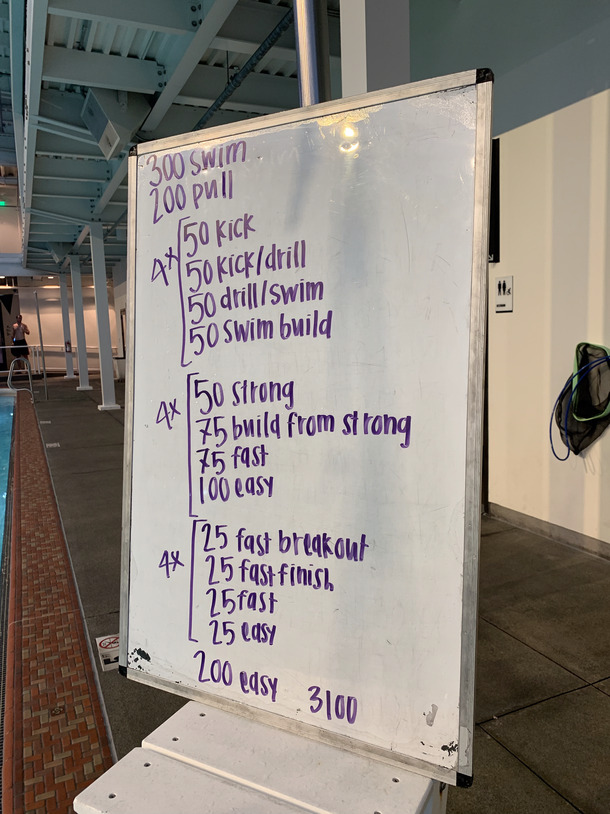 300 swim
200 pull
4x
50 kick
50 kick/drill
50 drill/swim
50 swim build
4x
50 strong
75 build from strong
75 fast
100 easy
4x
25 fast breakout
25 fast finish
25 fast
25 easy
200 easy 3100